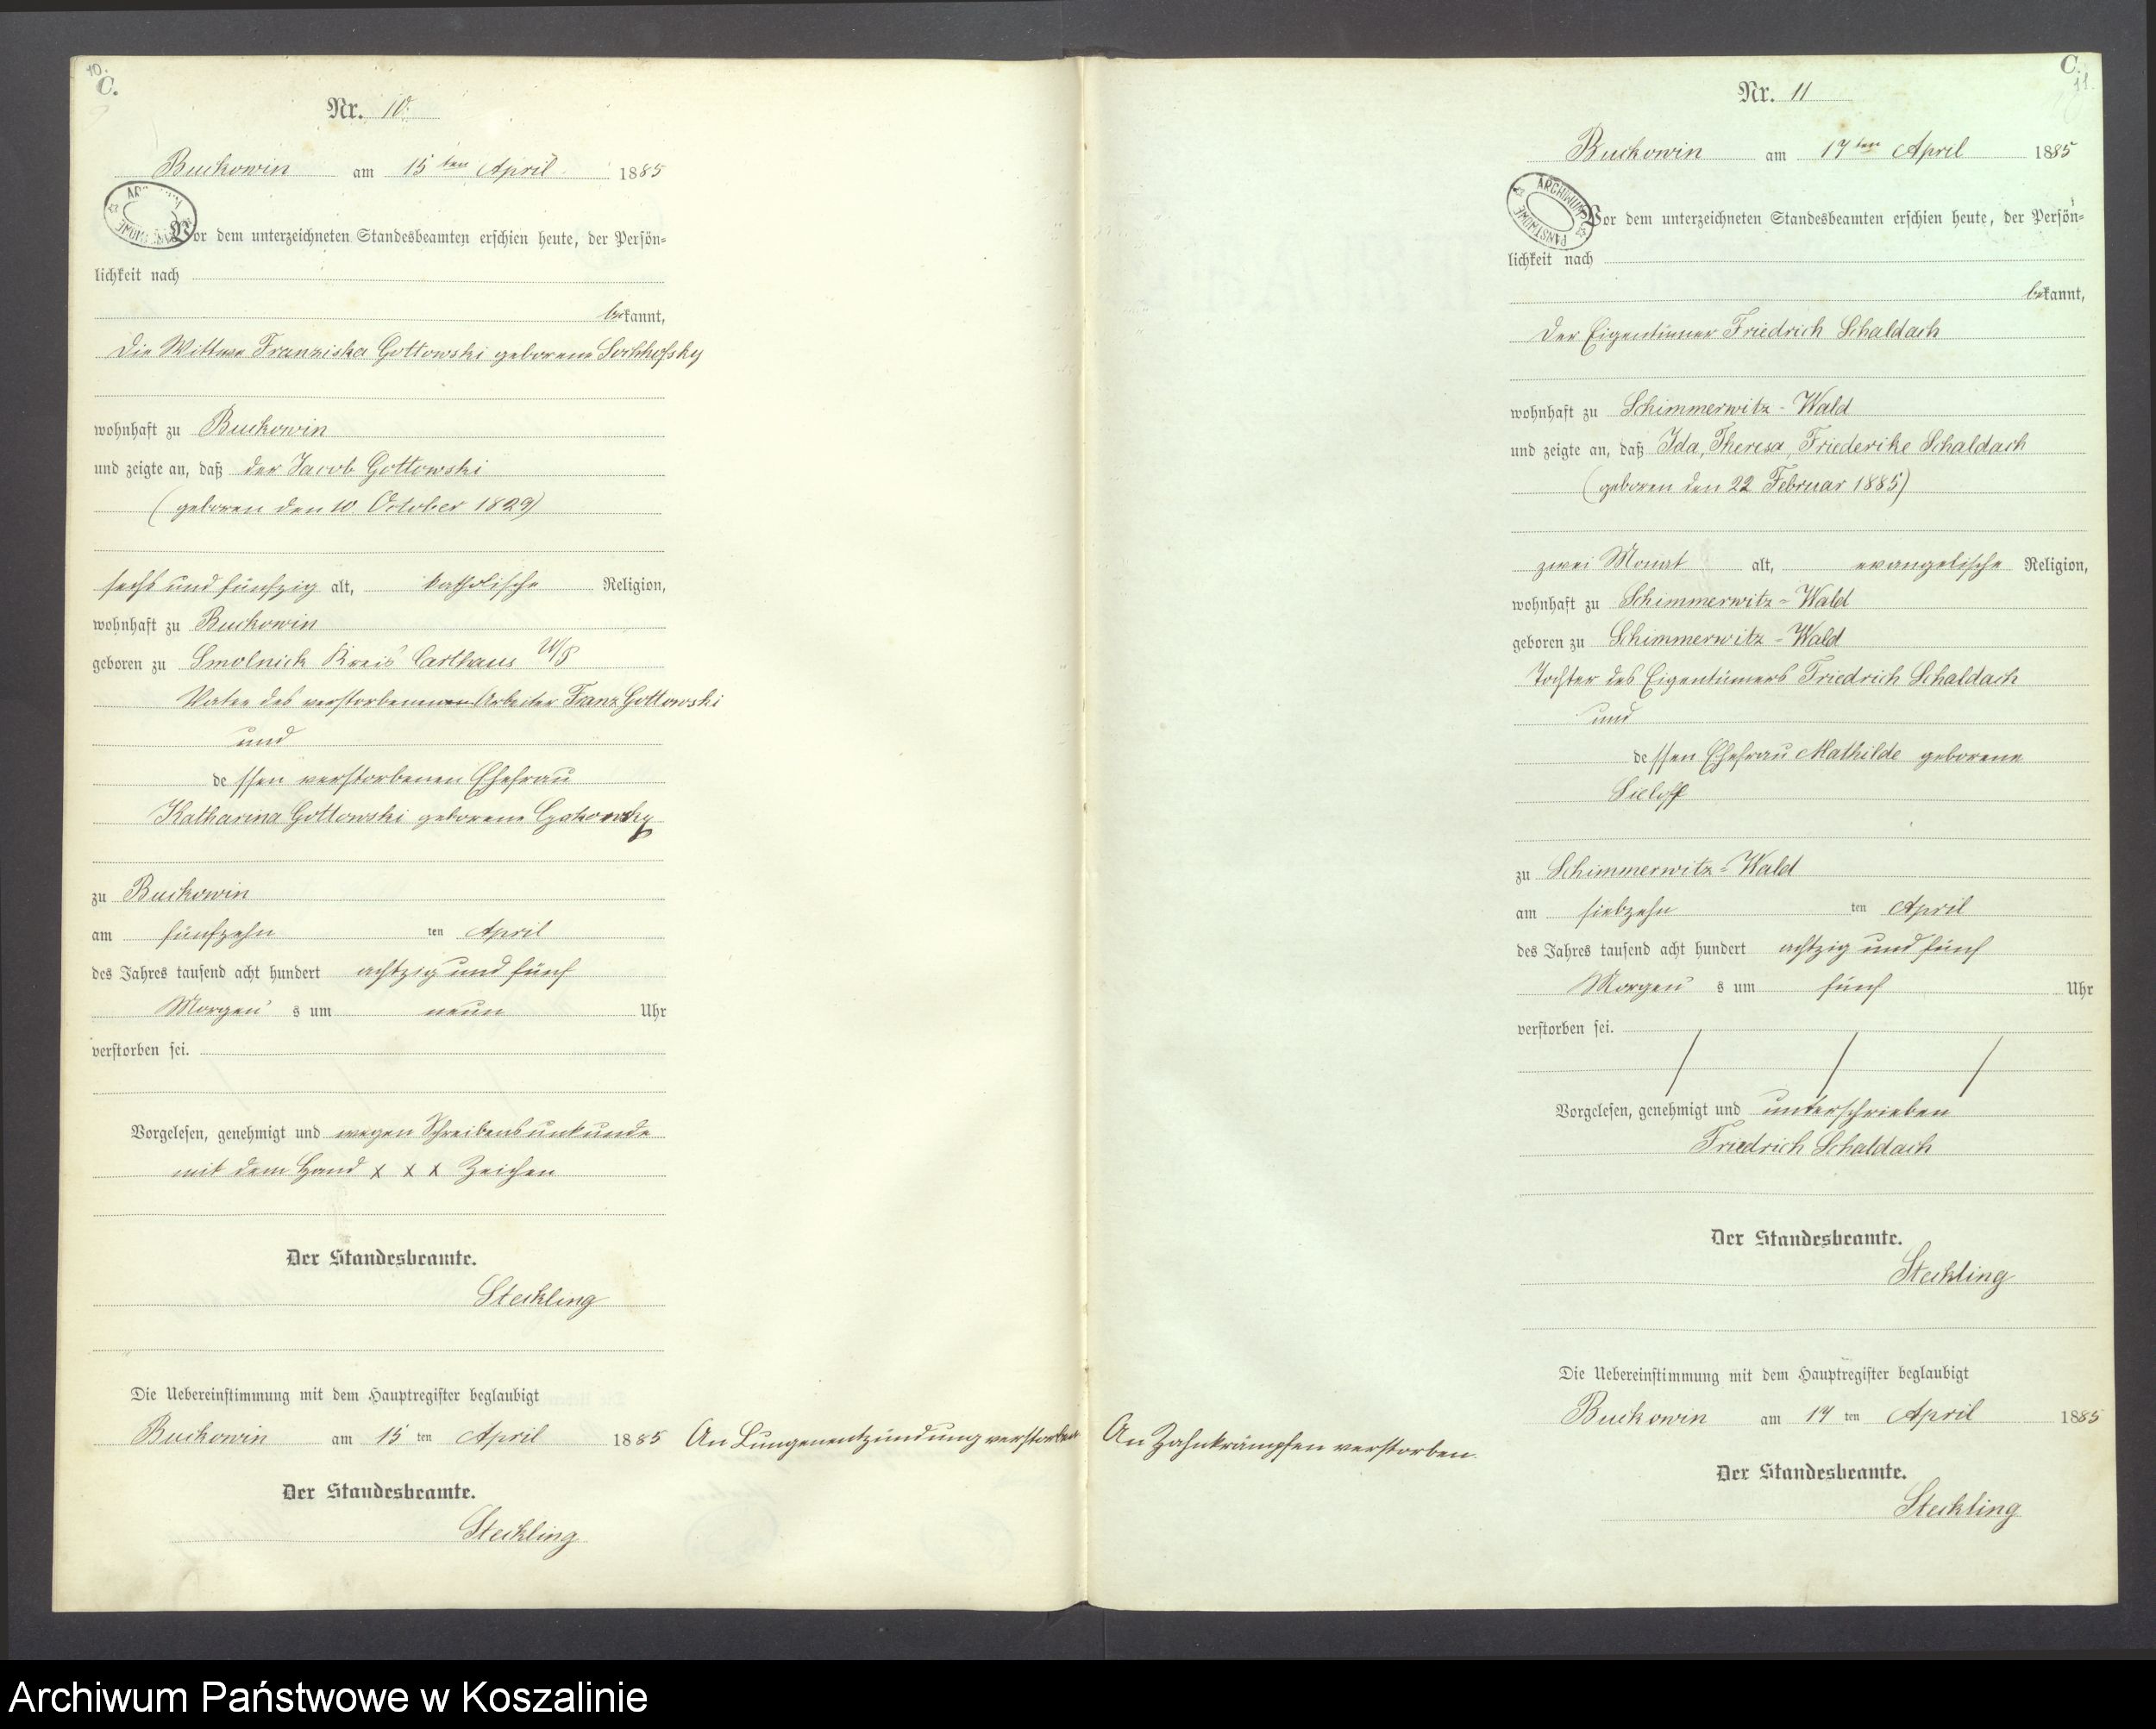 10.
C.
Nr. 10.
Buckowin am 15 ten April 1885
Vor dem unterzeichneten Standesbeamten erschien heute, der Persön-
lichkeit nach
bekannt,
die Wittwe Franziska Gottowski geborene
wohnhaft zu Buckowin
und zeigte an, daß der Jacob Gottowski
(geboren den 10 October 1829)
sechs und fünfzig alt, katholische Religion,
wohnhaft zu Buckowin
geboren zu Smolnick Kreis Carthaus W/P
Vater des verstorbenen Arbeiter Franz Gottowski
und
dessen verstorbenen Ehefrau
Katharina Gottowski geborene
zu Buckowin
am fünfzehn ten April
des Jahres tausend acht hundert achtzig und fünf
Morgens um neun Uhr
verstorben sei.
Vorgelesen, genehmigt und wegen Schreibensunkunde
mit dem Hand x x x Zeichen
Der Standesbeamte.
Steckling
Die Uebereinstimmung mit dem Hauptregister beglaubigt
Buckowin am 15 ten April 1885
Der Standesbeamte.
Steckling
An Lungenentzündung verstorben
C.
11.
Nr. 11
Buckowin am 17 ten April 1885
ARCHIWUM PAŃSTWOWE
Vor dem unterzeichneten Standesbeamten erschien heute, der Persön-
lichkeit nach
bekannt,
der Eigentümer Friedrich Schaldach
wohnhaft zu Schimmerwitz-Wald
und zeigte an, daß Ida, Theresa, Friederike Schaldach
(geboren den 22 Februar 1885)
zwei Monat alt, evangelische Religion,
wohnhaft zu Schimmerwitz-Wald
geboren zu Schimmerwitz-Wald
Tochter des Eigentümers Friedrich Schaldach
und
dessen Ehefrau Mathilde geborene
Sieloff
zu Schimmerwitz-Wald
am siebzehn ten April
des Jahres tausend acht hundert achtzig und fünf
Morgens um fünf Uhr
verstorben sei.
Vorgelesen, genehmigt und unterschrieben
Friedrich Schaldach
Der Standesbeamte.
Steckling
Die Uebereinstimmung mit dem Hauptregister beglaubigt
Buckowin am 17 ten April 1885
Der Standesbeamte.
Steckling
An Zahnkrämpfen verstorben.
Archiwum Państwowe w Koszalinie